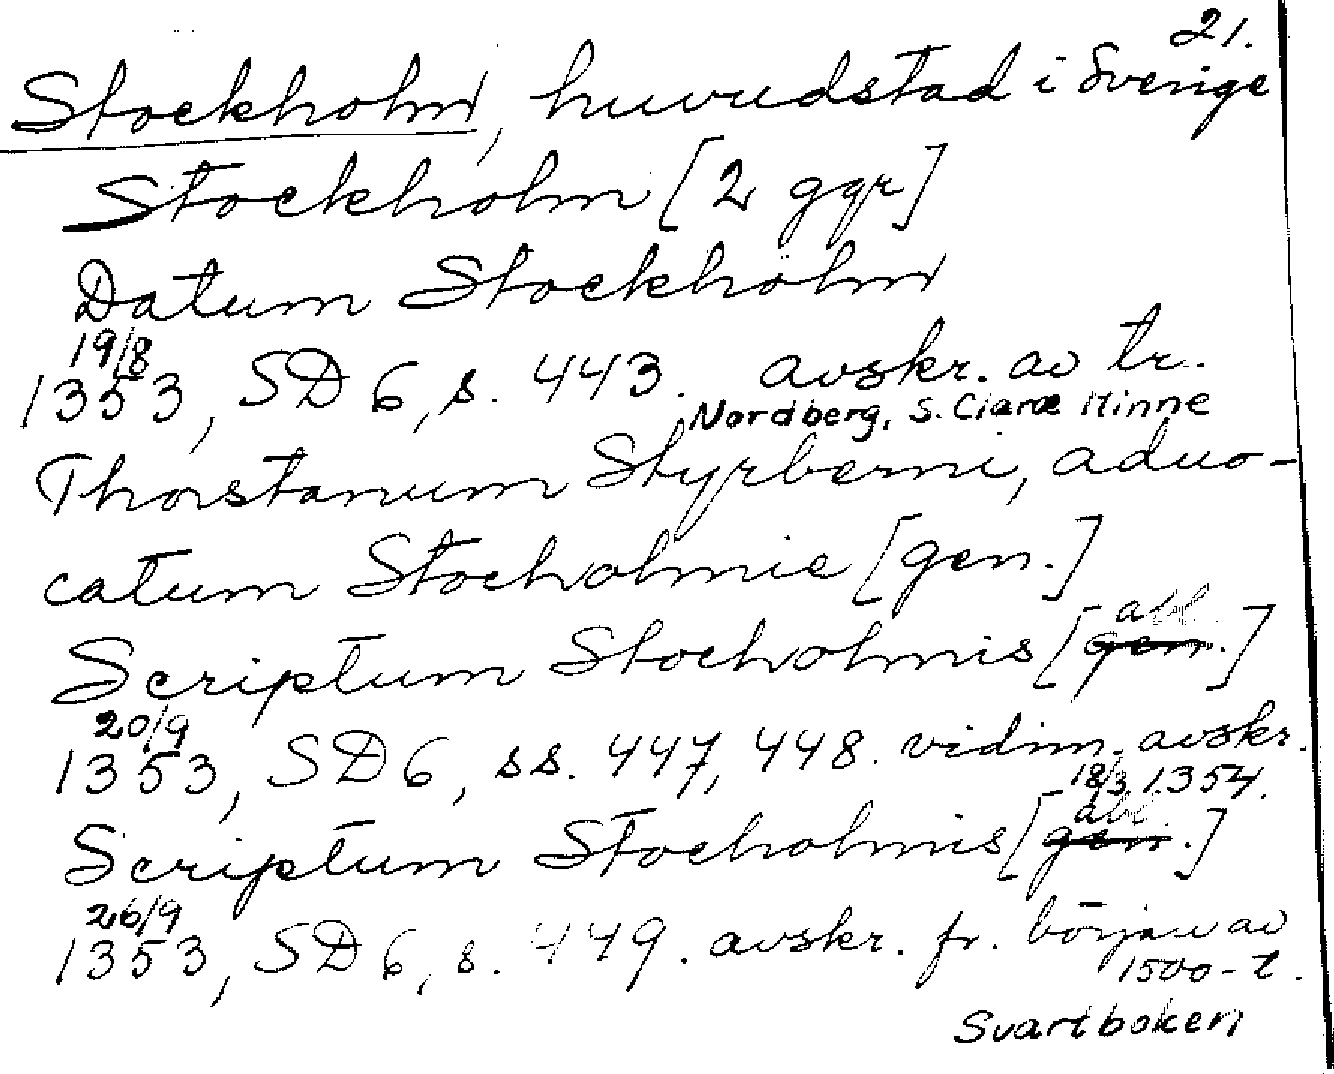 21.
Stockholm, huvudstad i Sverige
Stockholm [2 ggr]
Datum Stockholm
19/8
1353, SD 6, s. 443. avskr. av tr.
Nordberg, S. Claræ Minne
Thorstanum Styrberni, aduo-
catum Stocholmie [gen.]
abl.
Scriptum Stocholmis [gen.]
20/9
1353, SD 6, ss. 447, 448. vidim. avskr.
18/3 1354.
abl.
Scriptum Stocholmis [gen.]
26/9
1353, SD 6, s. 449. avskr. fr. början av
1500-t.
Svartboken